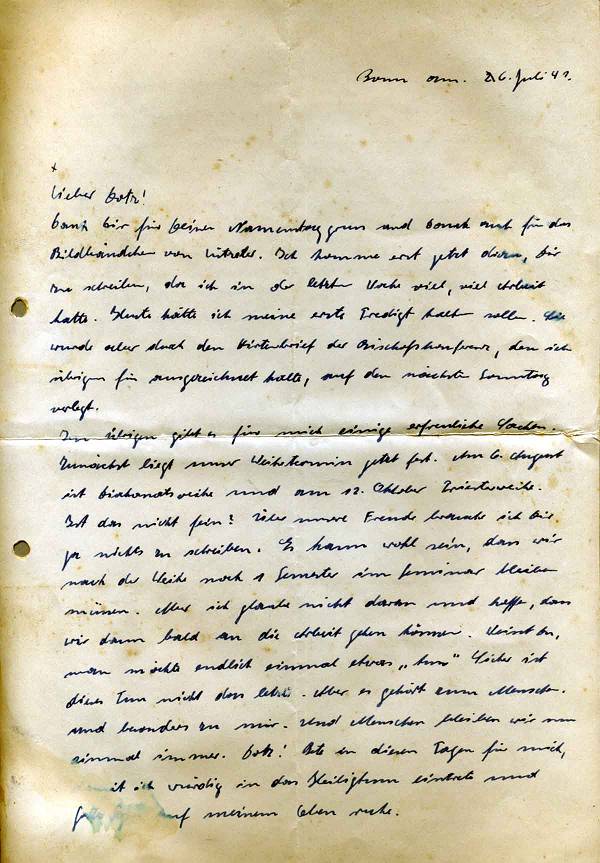 Bonn am. 26. Juli 41.
Lieber
Dank Dir für Deinen Namenstaggruss und Dank auch für das
Bildbändchen von Ich komme erst jetzt daran, Dir
zu schreiben, da ich in der letzten Woche viel, viel Arbeit
hatte. Heute hätte ich meine erste Predigt halten sollen. Sie
wurde aber durch den Hirtenbrief der Bischofskonferenz, den ich
übrigens für ausgezeichnet halte, auf den nächsten Sonntag
verlegt.
Im übrigen gibt es für mich einige erfreuliche Sachen.
Zunächst liegt unser Weihetermin jetzt fest. Am 6. August
ist Diakonatsweihe und am 12. Oktober Priesterweihe.
Ist das nicht fein? Über unsere Freude brauche ich Dir
ja nichts zu schreiben. Es kann wohl sein, dass wir
nach der Weihe noch 1 Semester im Seminar bleiben
müssen. Aber ich glaube nicht daran und hoffe, dass
wir dann bald an die Arbeit gehen können. Weisst Du,
man möchte endlich einmal etwas „tun“ Sicher ist
dieses Tun nicht das letzte. Aber es gehört zum Menschen.
und besonders zu mir. Und Menschen bleiben wir nun
einmal immer. Bete in diesen Tagen für mich,
ich würdig in das Heiligtum eintrete und
auf meinem Leben ruhe.